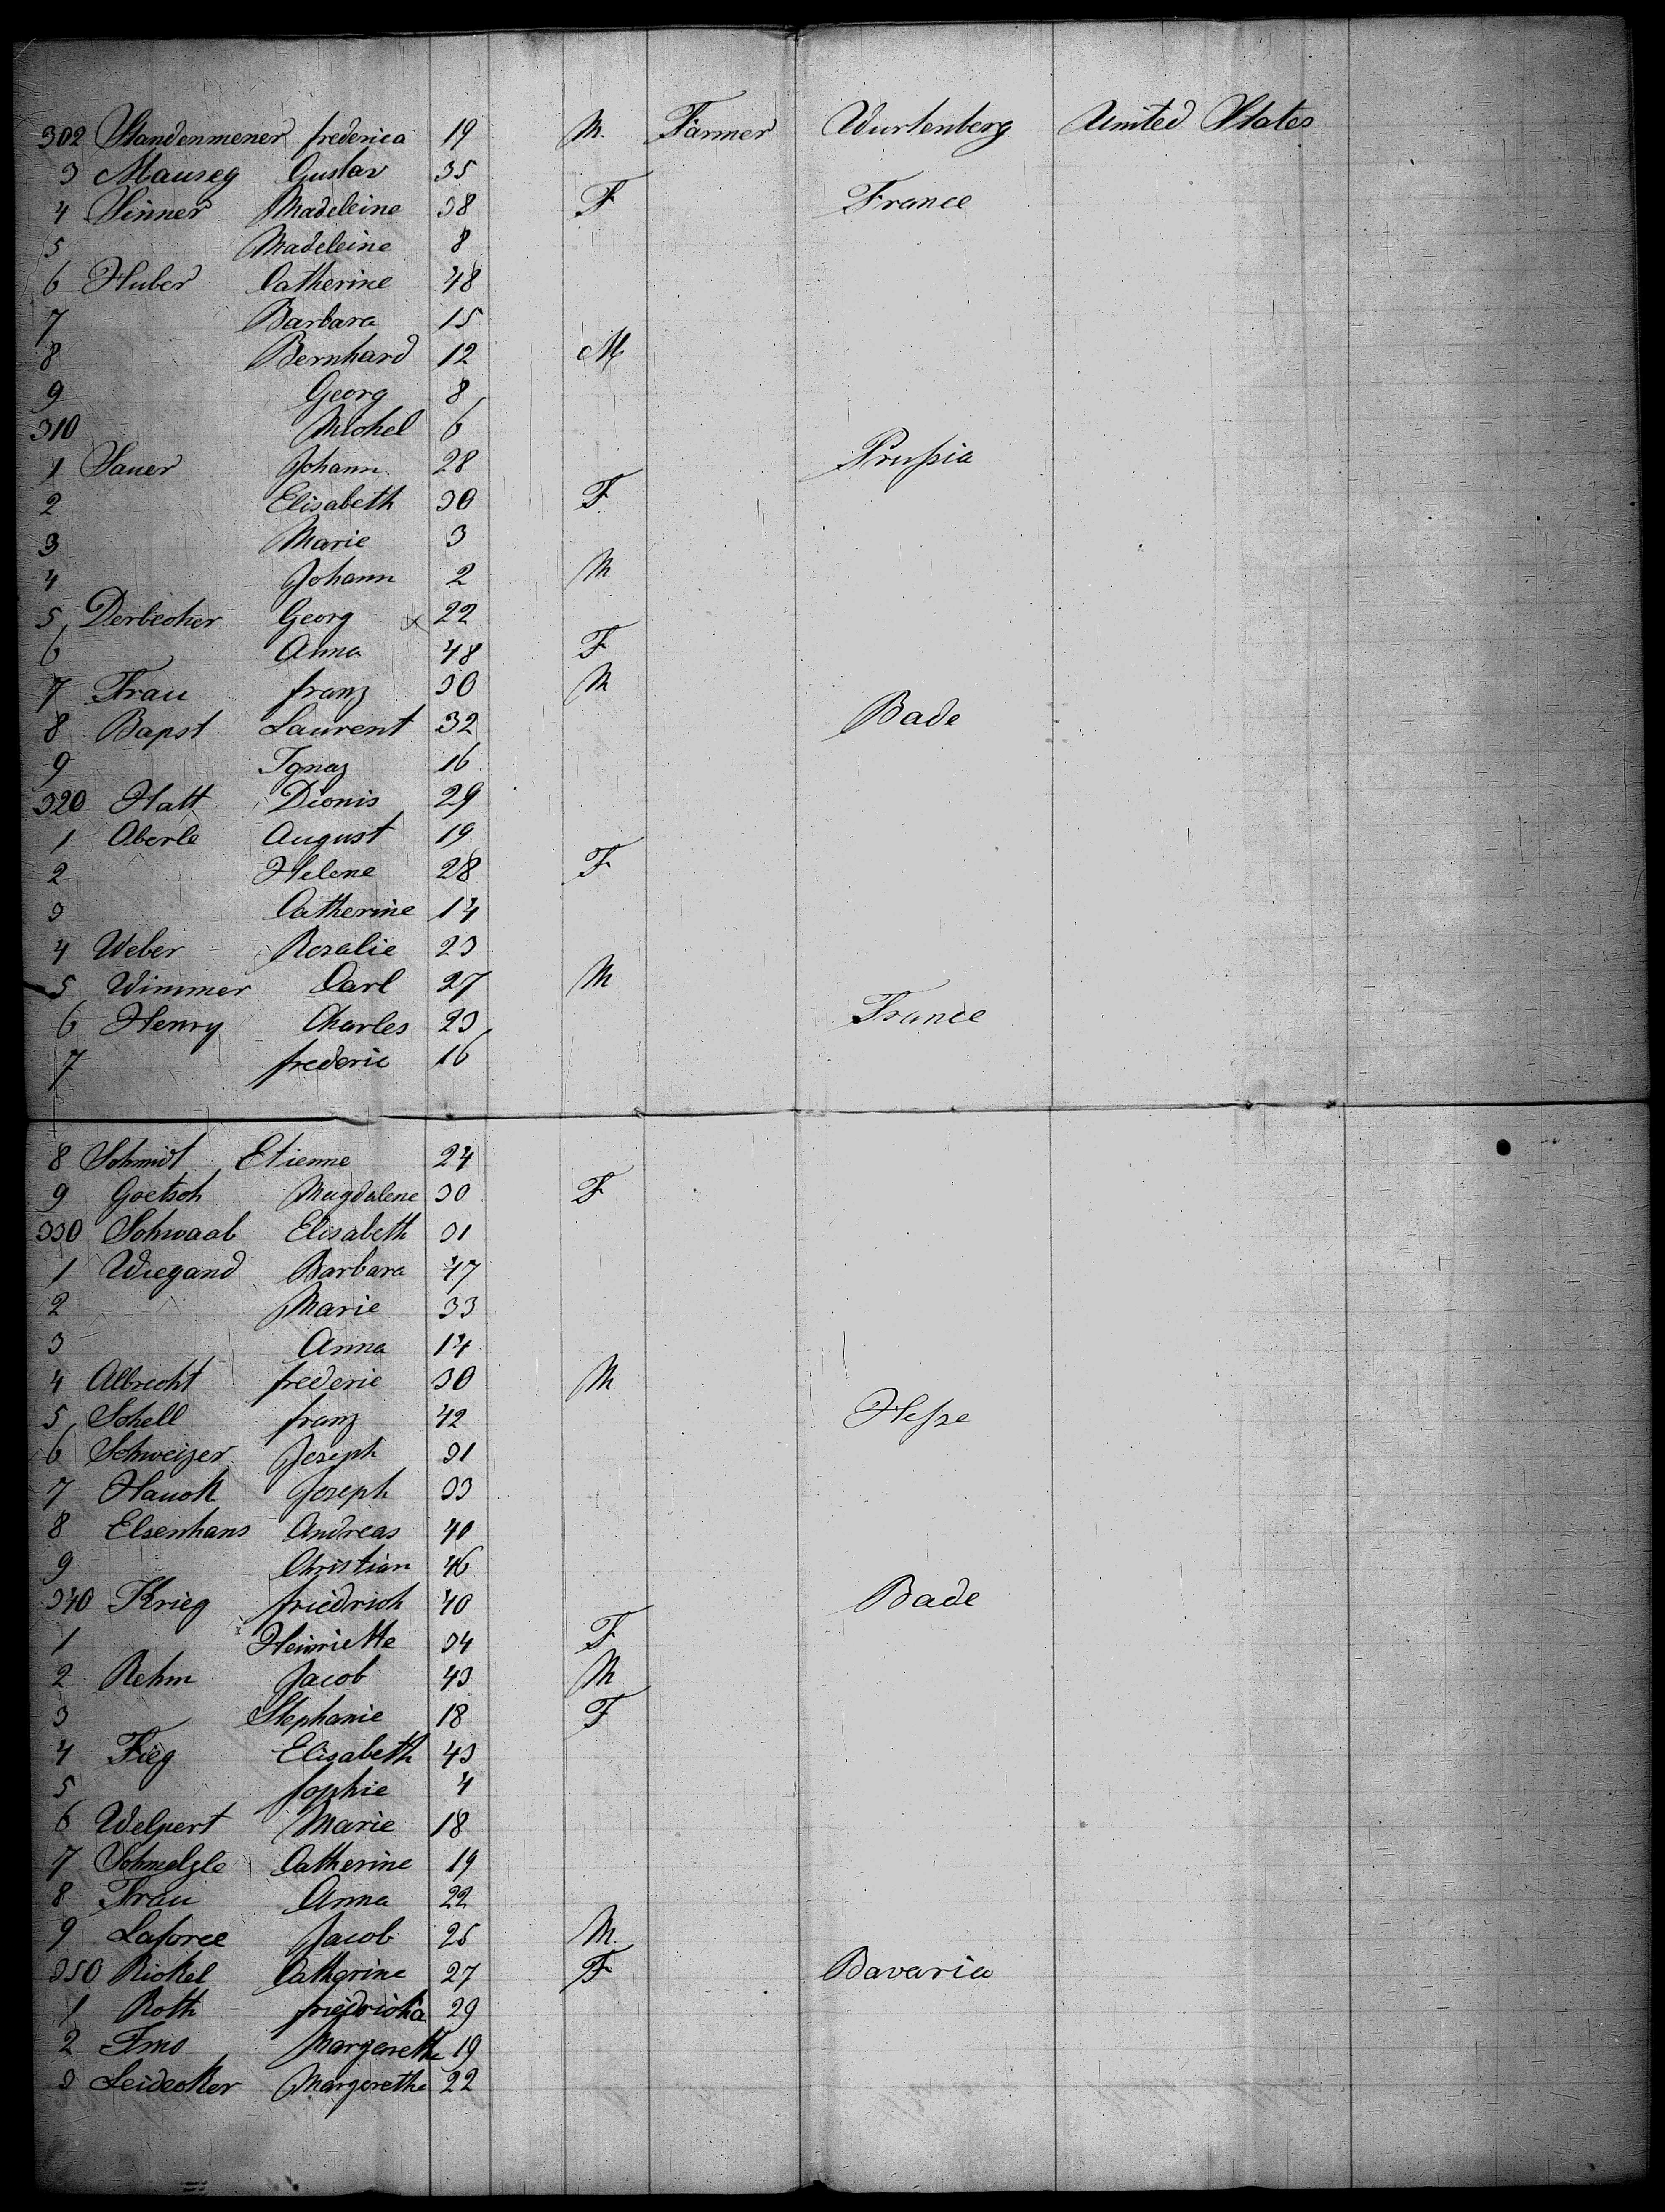 302 Standenmener frederica 19 M. Farmer Wurtenberg United States
3 Mauseg Gustav 35
4 Sinner Madeleine 38 F France
5 Madeleine 8
6 Huber Catherine 48
7 Barbara 15
8 Bernhard 12 M
9 Georg 8
310 Michel 6
1 Sauer Johann 28 Prussia
2 Elisabeth 30 F
3 Marie 3
4 Johann 2 M
5 Derbecker Georg x 22
6 Anna 48 F
7 Frau franz 30 M
8 Bapst Laurent 32 Bade
9 Ignaz 16
320 Hatt Dionis 29
1 Aberle August 19
2 Helene 28 F
3 Catherine 14
4 Weber Rosalie 23
5 Wimmer Carl 27 M
6 Henry Charles 23 France
7 frederic 16
8 Schmidt Etienne 24
9 Goetsch Magdalene 30 F
330 Schwaab Elisabeth 31
1 Wiegand Barbara 47
2 Marie 33
3 Anna 14
4 Albrecht frederic 30 M
5 Schell franz 42 Hesse
6 Schweizer Joseph 31
7 Hauck Joseph 33
8 Elsenhans Andreas 40
9 Christian 46
340 Krieg friedrich 40 Bade
1 Heinriette 34 F
2 Rehm Jacob 43 M
3 Stephanie 18 F
4 Fieg Elisabeth 43
5 sophie 4
6 Welpert Marie 18
7 Schmelzle Catherine 19
8 Frau Anna 22
9 Laforce Jacob 25 M.
350 Rickel Catharine 27 F Bavaria
1 Roth friedricka 29
2 Margarethe 19
3 Leidecker Margarethe 22